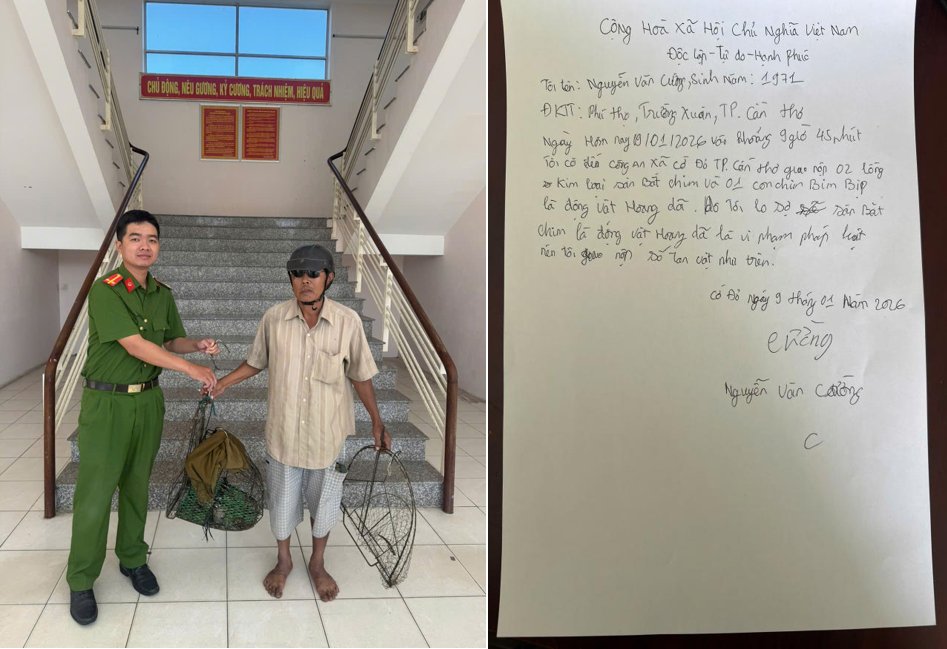 CHỦ ĐỘNG, NÊU GƯƠNG, KỶ CƯƠNG, TRÁCH NHIỆM, HIỆU QUẢ
Cộng Hoà Xã Hội Chủ Nghĩa Việt Nam
Độc lập - Tự do - Hạnh Phúc
Tôi tên: Nguyễn Văn Cường, Sinh Năm: 1971
ĐKTT: Phú thọ, Trường Xuân, TP. Cần thơ
Ngày Hôm nay 9/01/2026 vào khoảng 9 giờ 45 phút
Tôi có đến công AN xã cờ Đỏ TP. Cần thơ giao nộp 02 lồng
Kim loại săn Bắt chim và 01 con chim Bìm Bịp
là động vật Hoang dã. Do Tôi lo sợ săn Bắt
chim là động vật Hoang dã là vi phạm pháp luật
nên tôi giao nộp số Tan vật như trên.
cờ Đỏ Ngày 9 tháng 01 Năm 2026
cường
Nguyễn Văn Cường
C